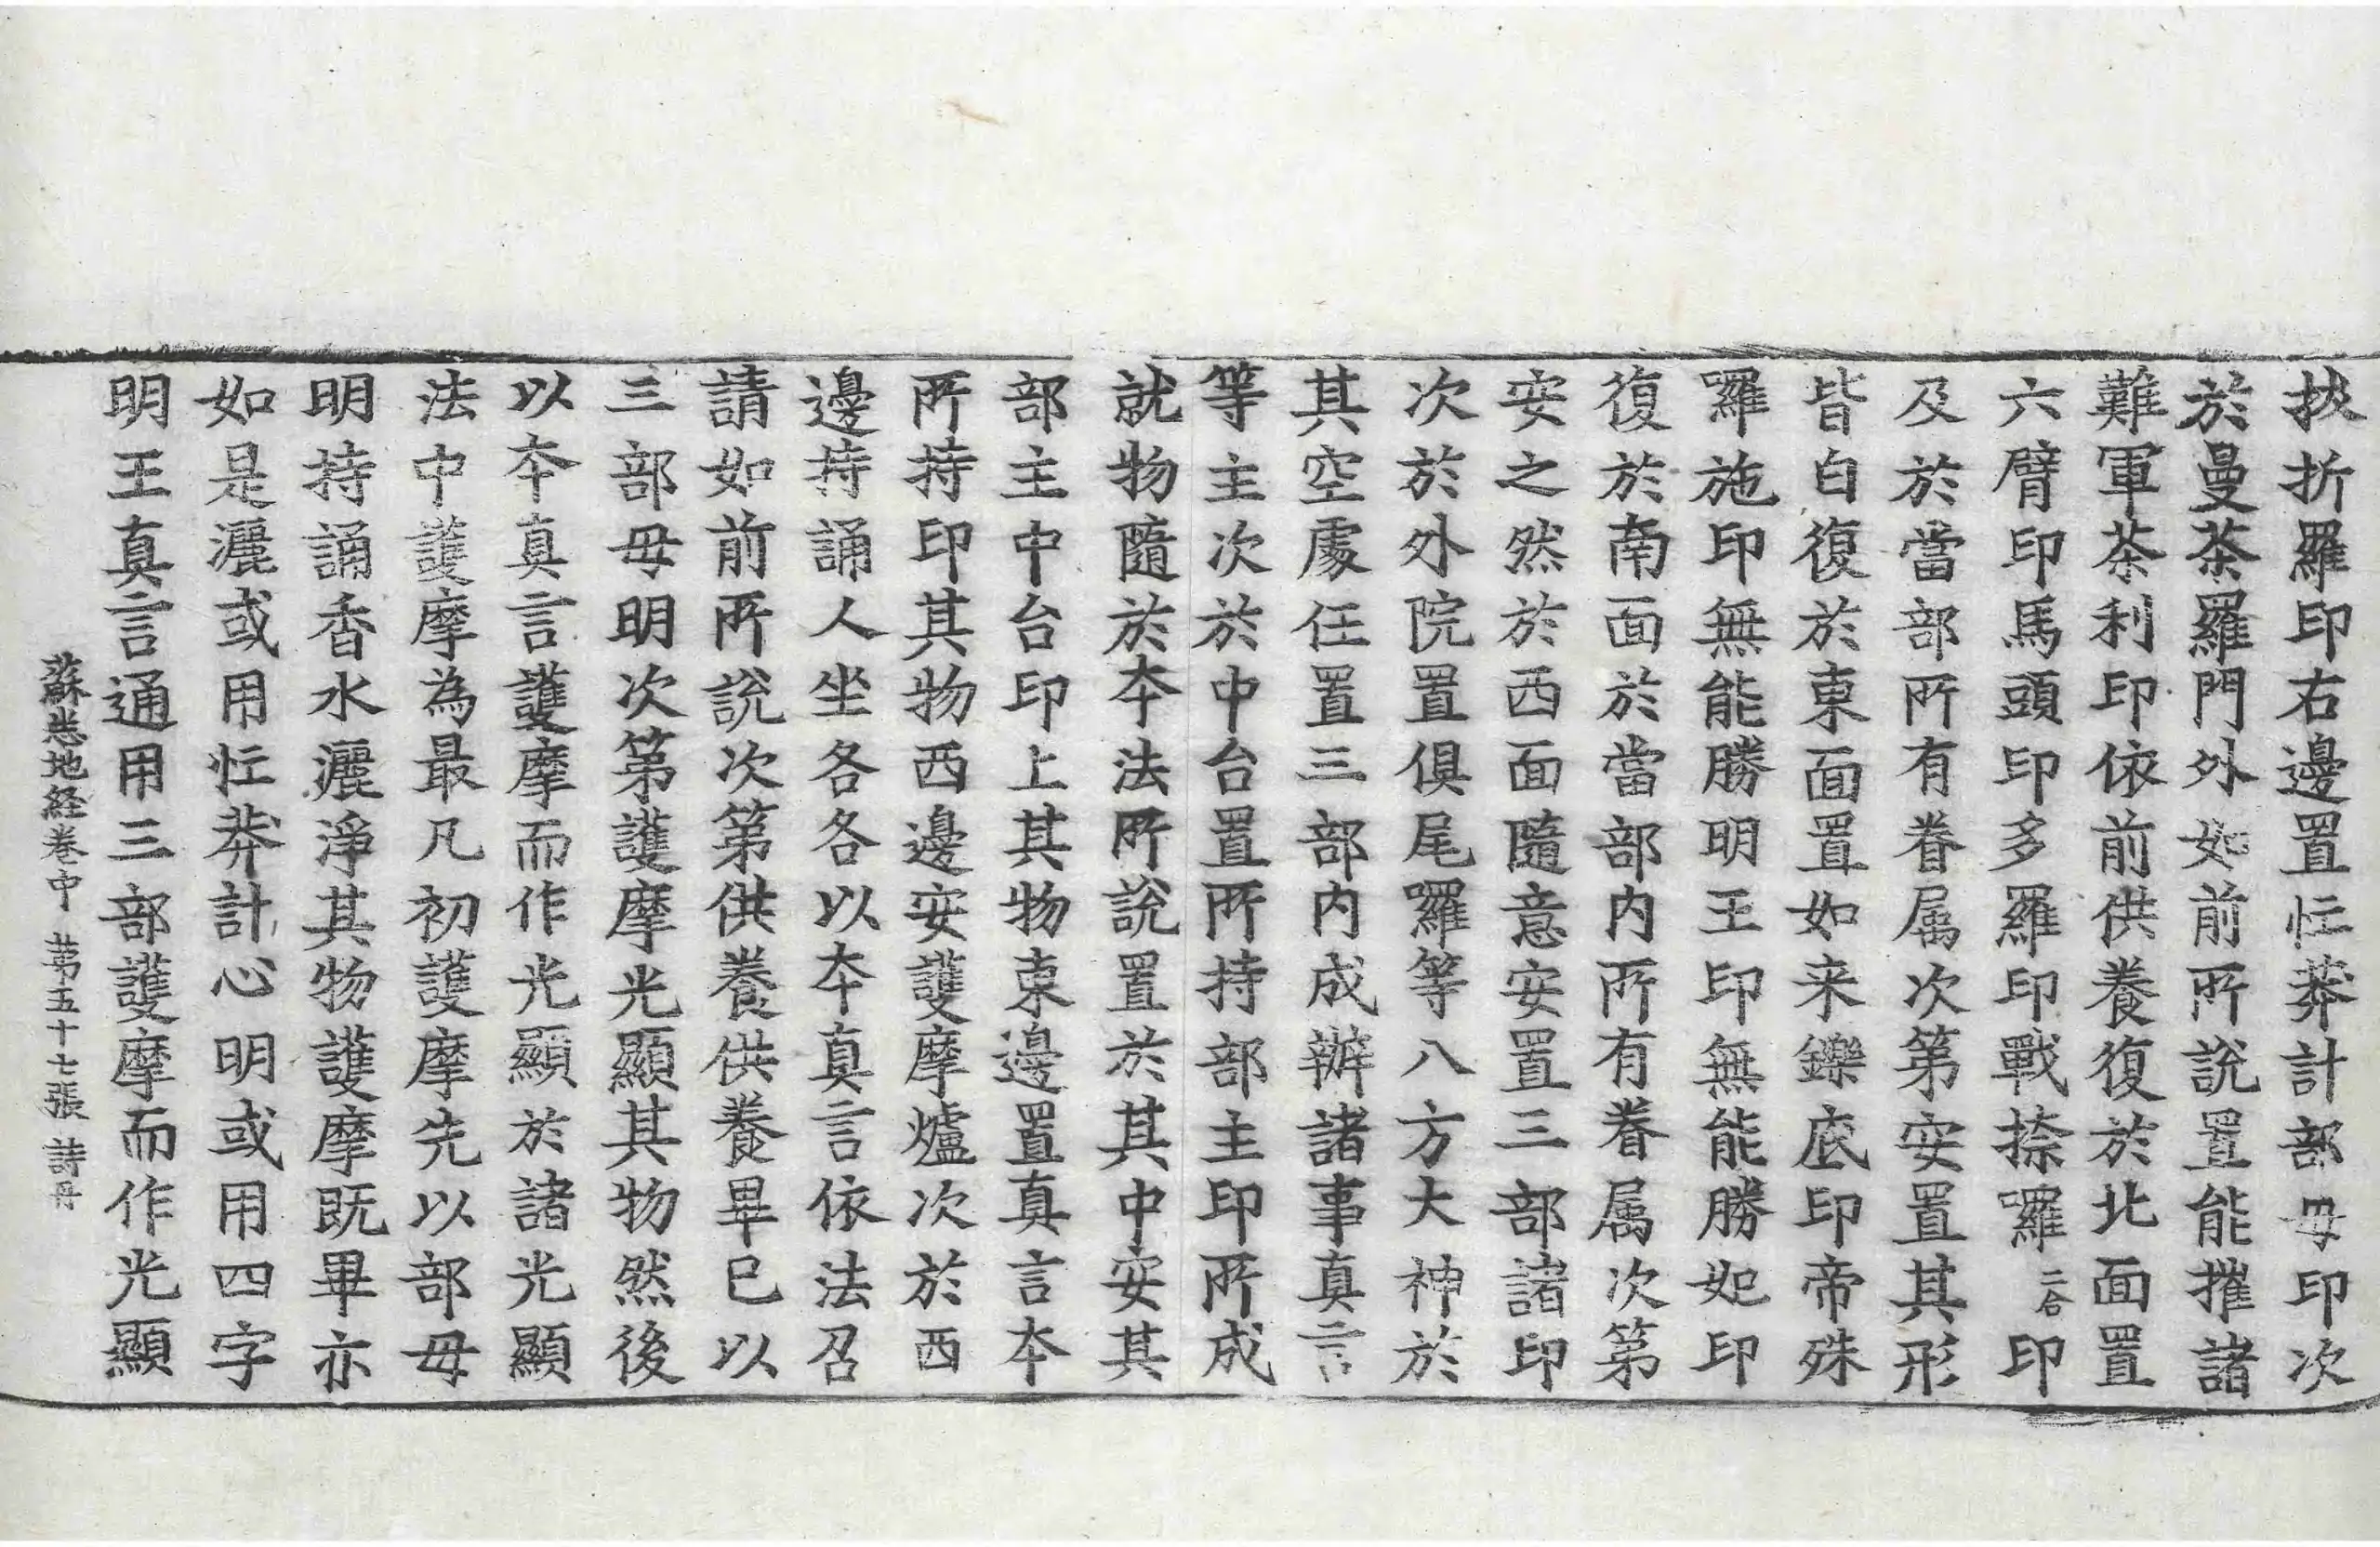 拔折羅印右邊置忙莽計部母印次
於曼荼羅門外如前所說置能摧諸
難軍荼利印依前供養復於北面置
六臂印馬頭印多羅印戰捺囉二合印
及於當部所有眷属次第安置其形
皆白復於東面置如来鑠底印帝殊
羅施印無能勝明王印無能勝妃印
復於南面於當部内所有眷属次第
安之然於西面隨意安置三部諸印
次於外院置俱尾囉等八方大神於
其空處任置三部内成辦諸事真言
等主次於中台置所持部主印所成
就物隨於本法所說置於其中安其
部主中台印上其物東邊置真言本
所持印其物西邊安護摩爐次於西
邊持誦人坐各各以本真言依法召
請如前所說次第供養供養畢已以
三部母明次第護摩光顯其物然後
以本真言護摩而作光顯於諸光顯
法中護摩為最凡初護摩先以部母
明持誦香水灑淨其物護摩既畢亦
如是灑或用忙莽計心明或用四字
明王真言通用三部護摩而作光顯
蘇悉地経卷中 苐五十七張 詩丹